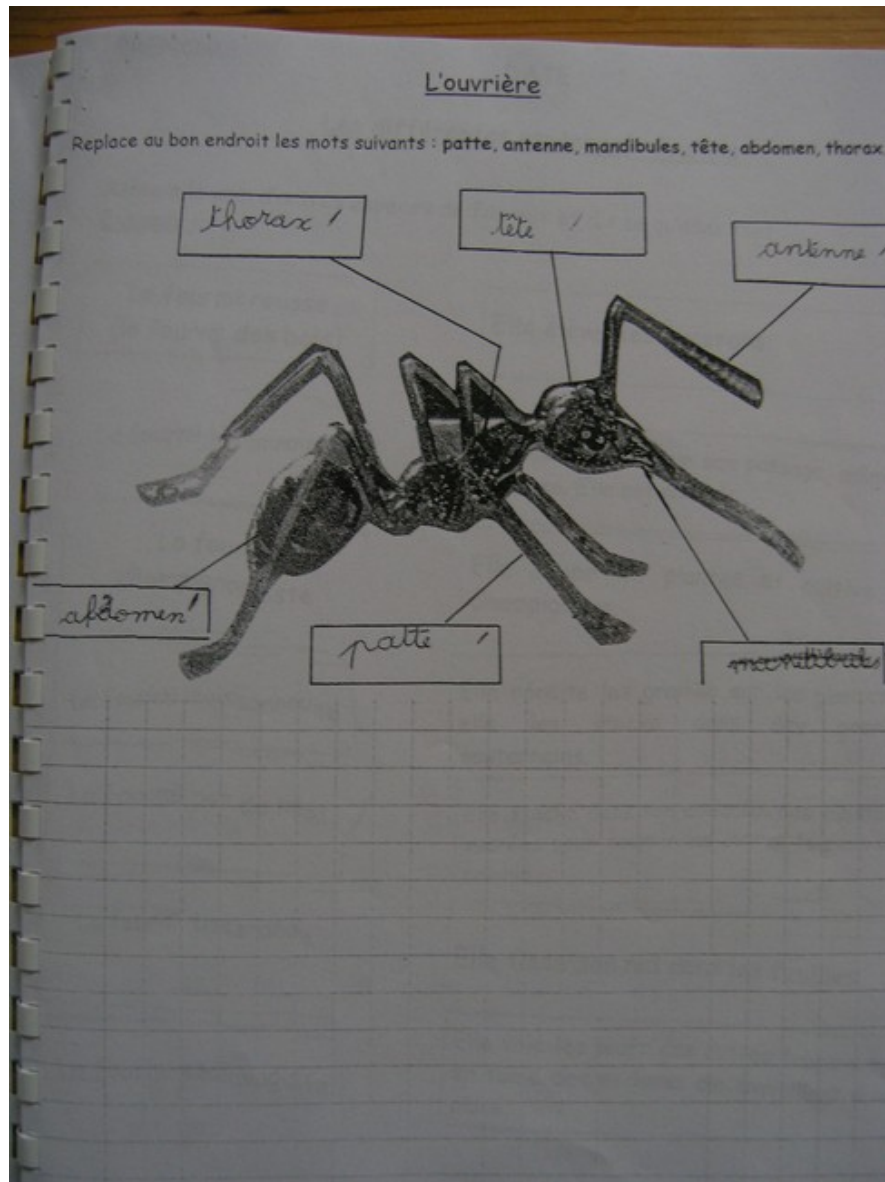 L'ouvrière
Replace au bon endroit les mots suivants : patte, antenne, mandibules, tête, abdomen, thorax
thorax
tête
antenne
abdomen
patte
mandibules